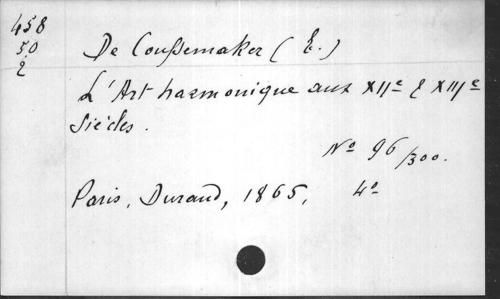 458
50
2
De Coussemaker (E.)
L'Art harmonique aux XIIe & XIIIe
Siècles.
No 96/300.
Paris, Durand, 1865, 4o